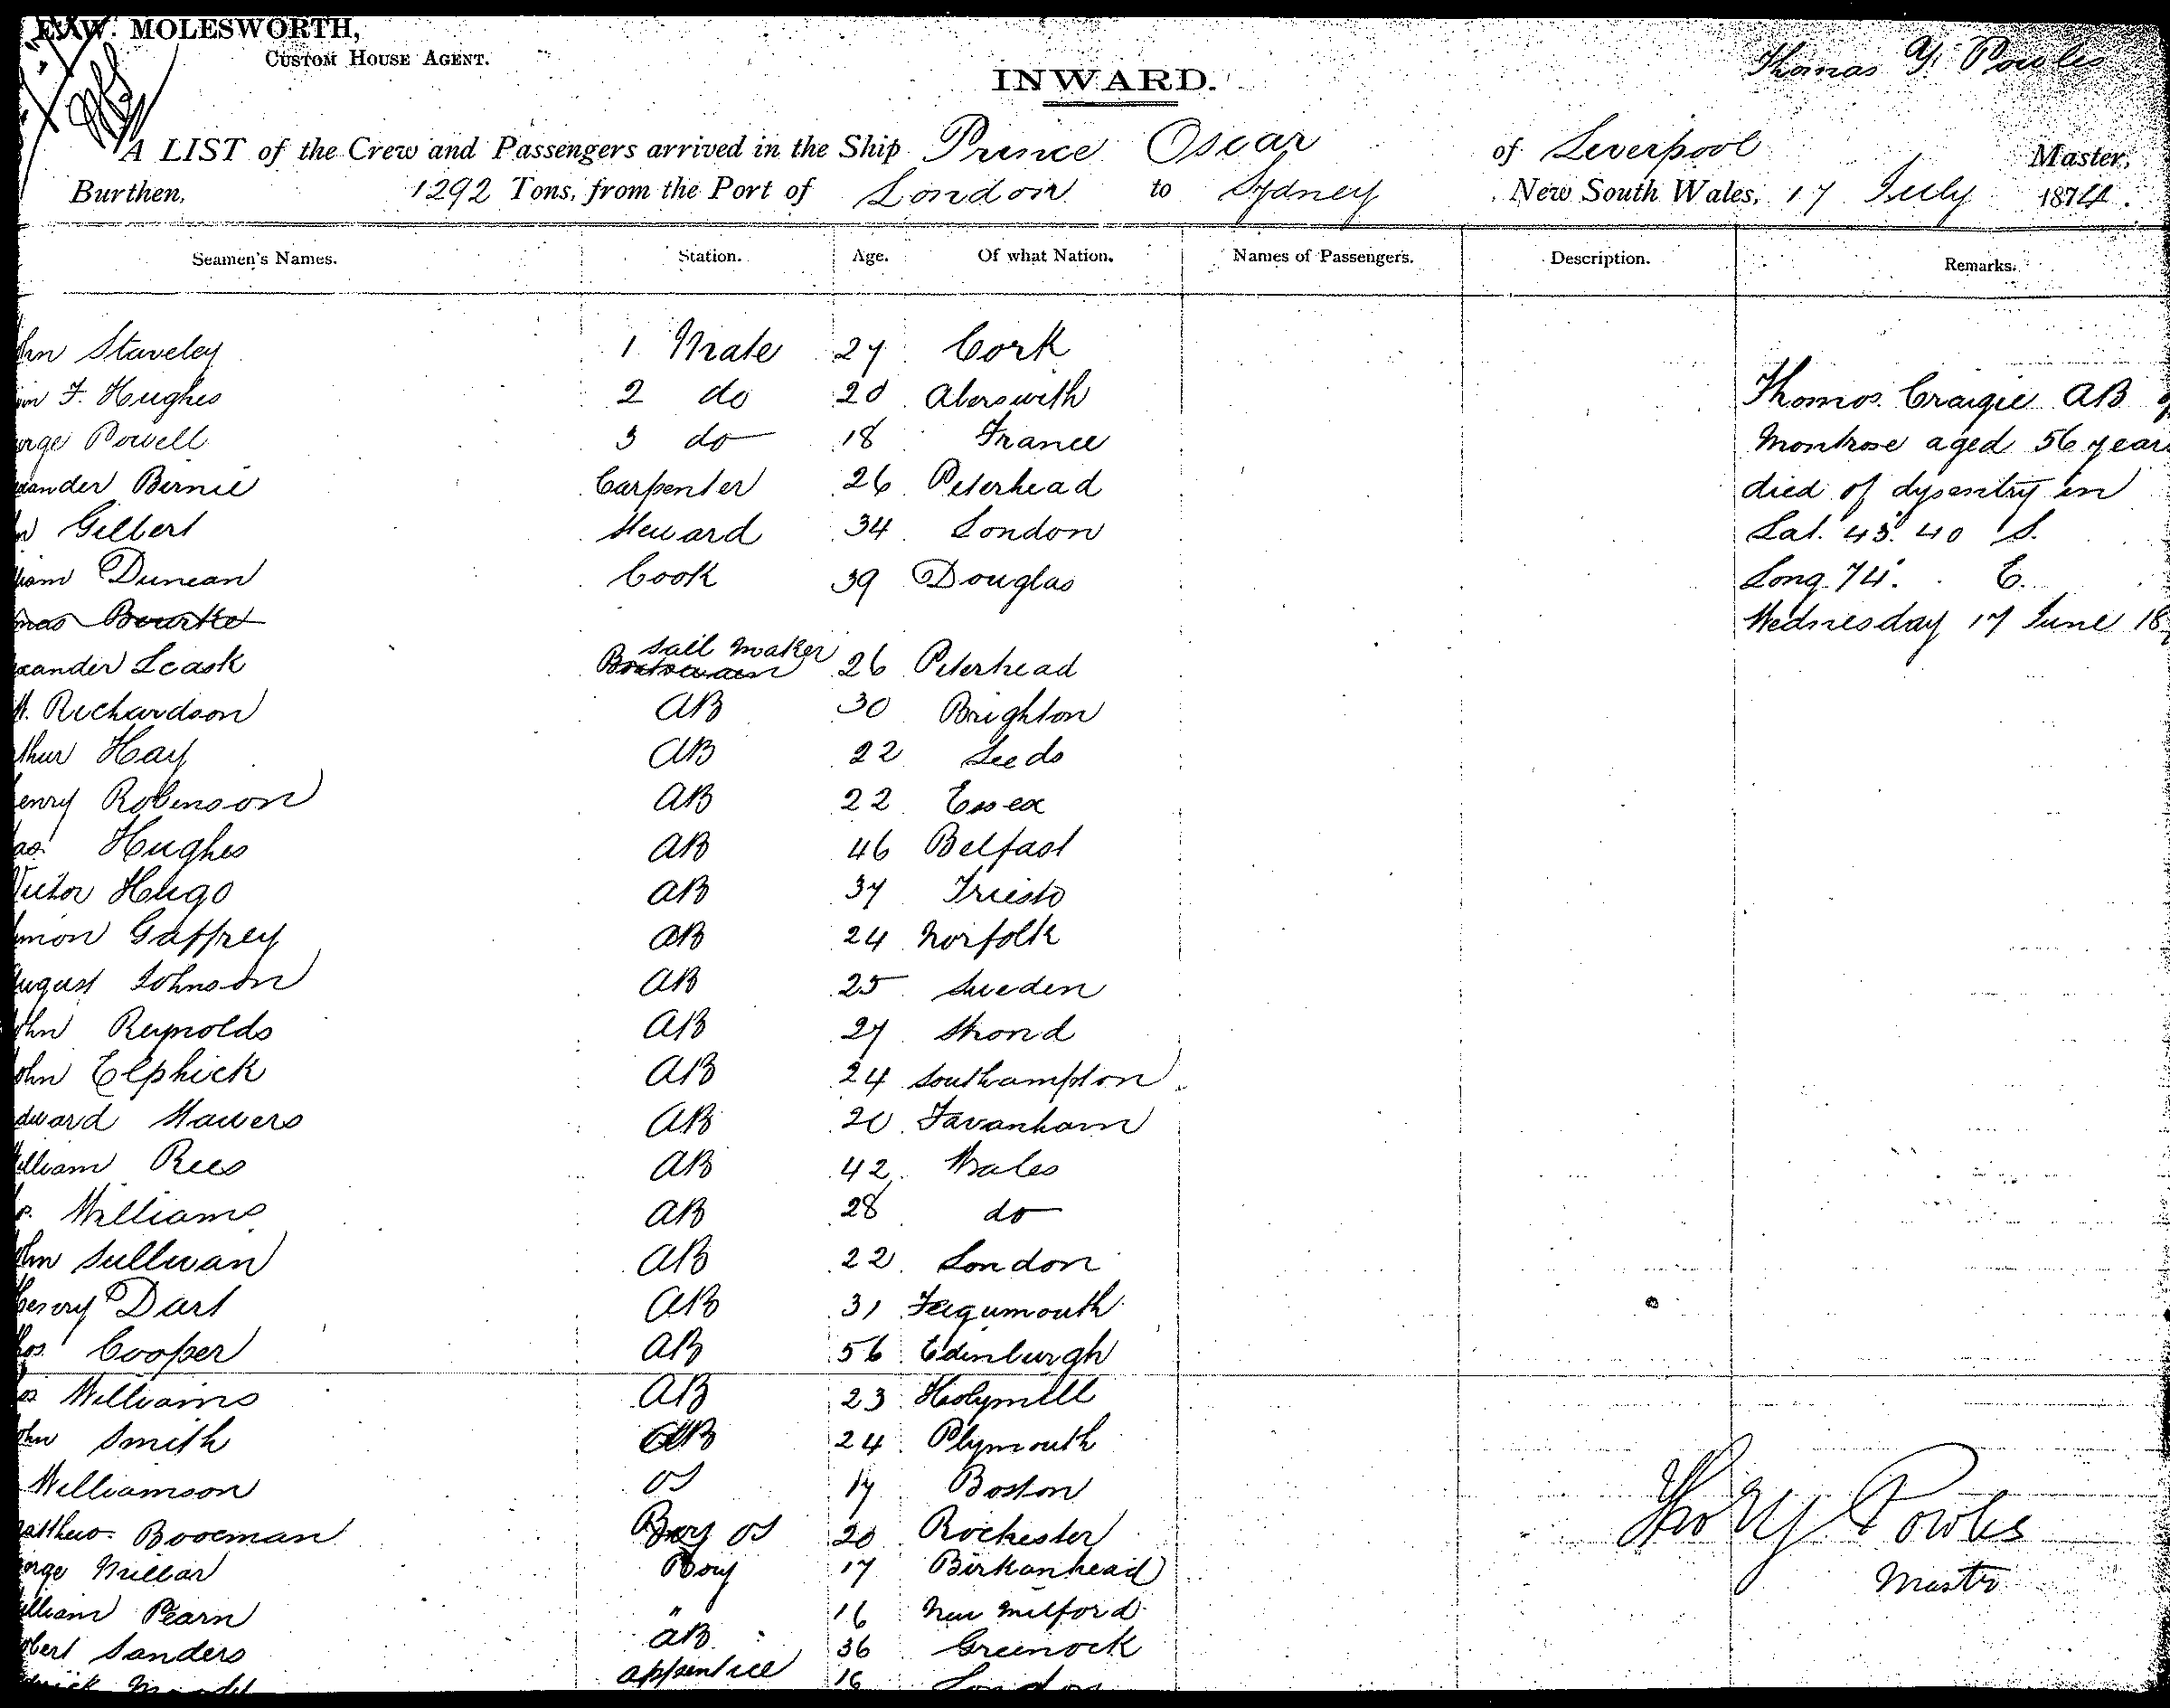 E. & W. MOLESWORTH,
CUSTOM HOUSE AGENT.
INWARD.
Thomas Y. Powles
A LIST of the Crew and Passengers arrived in the Ship Prince Oscar of Liverpool Master,
Burthen, 1292 Tons, from the Port of London to Sydney New South Wales, 17 July 1874.
Seamen's Names. Station. Age. Of what Nation. Names of Passengers. Description. Remarks.
hn Staveley 1 Mate 27 Cork
F. Hughes 2 do 20 Aberswith Thomas Craigie AB
orge Powell 3 do 18 France Montrose aged 56 years
xander Birnie Carpenter 26 Peterhead died of dysentry in
Gilbert Steward 34 London Lat. 43° 40 S.
liam Duncan Cook 39 Douglas Long 74° E.
mas Bourke Wednesday 17 June 18
Sail Maker
xander Leask Boatswain 26 Peterhead
Richardson AB 30 Brighton
thur Hay AB 22 Leeds
enry Robinson AB 22 Essex
Hughes AB 46 Belfast
Victor Hugo AB 37 Triesto
imon Gaffrey AB 24 Norfolk
August Johnson AB 25 Sweden
ohn Reynolds AB 27 Strond
ohn Elphick AB 24 Southampton
dward Stawers AB 20 Favanham
illiam Rees AB 42 Wales
Williams AB 28 do
ohn Sullivan AB 22 London
Dart AB 31 Teigumouth
hos. Cooper AB 56 Edinburgh
Williams AB 23 Holymell
ohn Smith AB 24 Plymouth
Williamson OS 17 Boston
atthew Booeman Boy OS 20 Rochester Thos Y Powles
orge Millar Boy 17 Birkanhead Master
illiam Pearn " 16 New Milford
obert Sanders AB 36 Greenock
apprentice 16 London